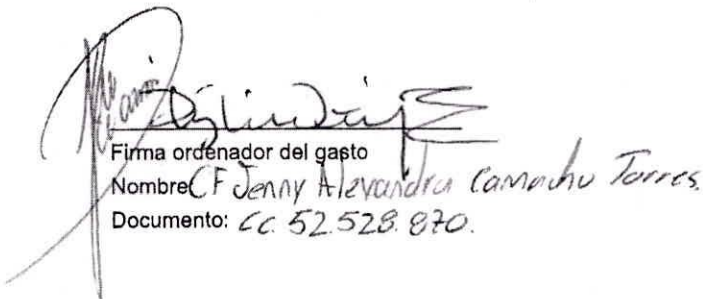 Firma ordenador del gasto
Nombre CF Jenny Alexandra Camacho Torres.
Documento: CC. 52.528.870.